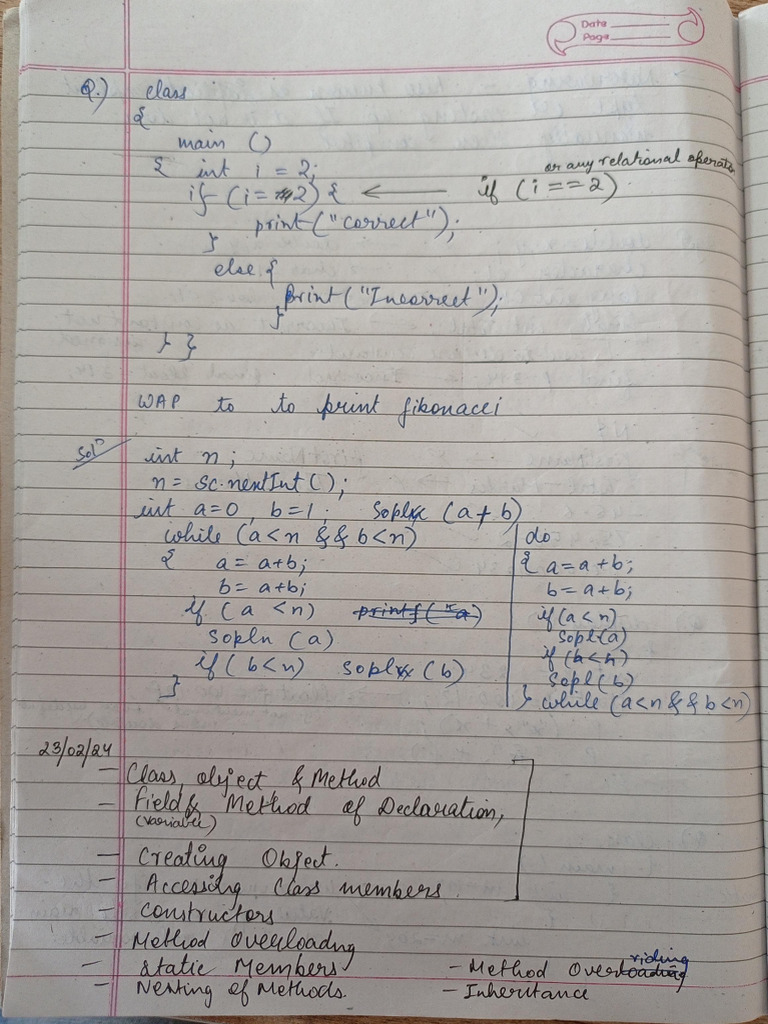 Date
Page
Q.) class
{
main ()
{ int i = 2;
or any relational operator
if (i = 2) { ← if (i == 2)
print ("correct");
}
else {
print ("Incorrect");
}
} }
WAP to to print fibonacci
Solⁿ
int n;
n = sc.nextInt();
int a=0, b=1; Sopln (a+b)
while (a<n && b<n)
{ a = a+b;
b = a+b;
if (a <n) printf("a)
Sopln (a)
if (b<n) sopln (b)
}
do
{ a=a+b;
b=a+b;
if(a<n)
Sopl(a)
if (b<n)
Sopl(b)
} while (a<n && b<n)
23/02/24
- Class, object & Method
- Field & Method of Declaration,
(variable)
- Creating Object.
- Accessing Class members.
- Constructors
- Method Overloading
- Static Members - Method Overriding
- Nesting of Methods. - Inheritance